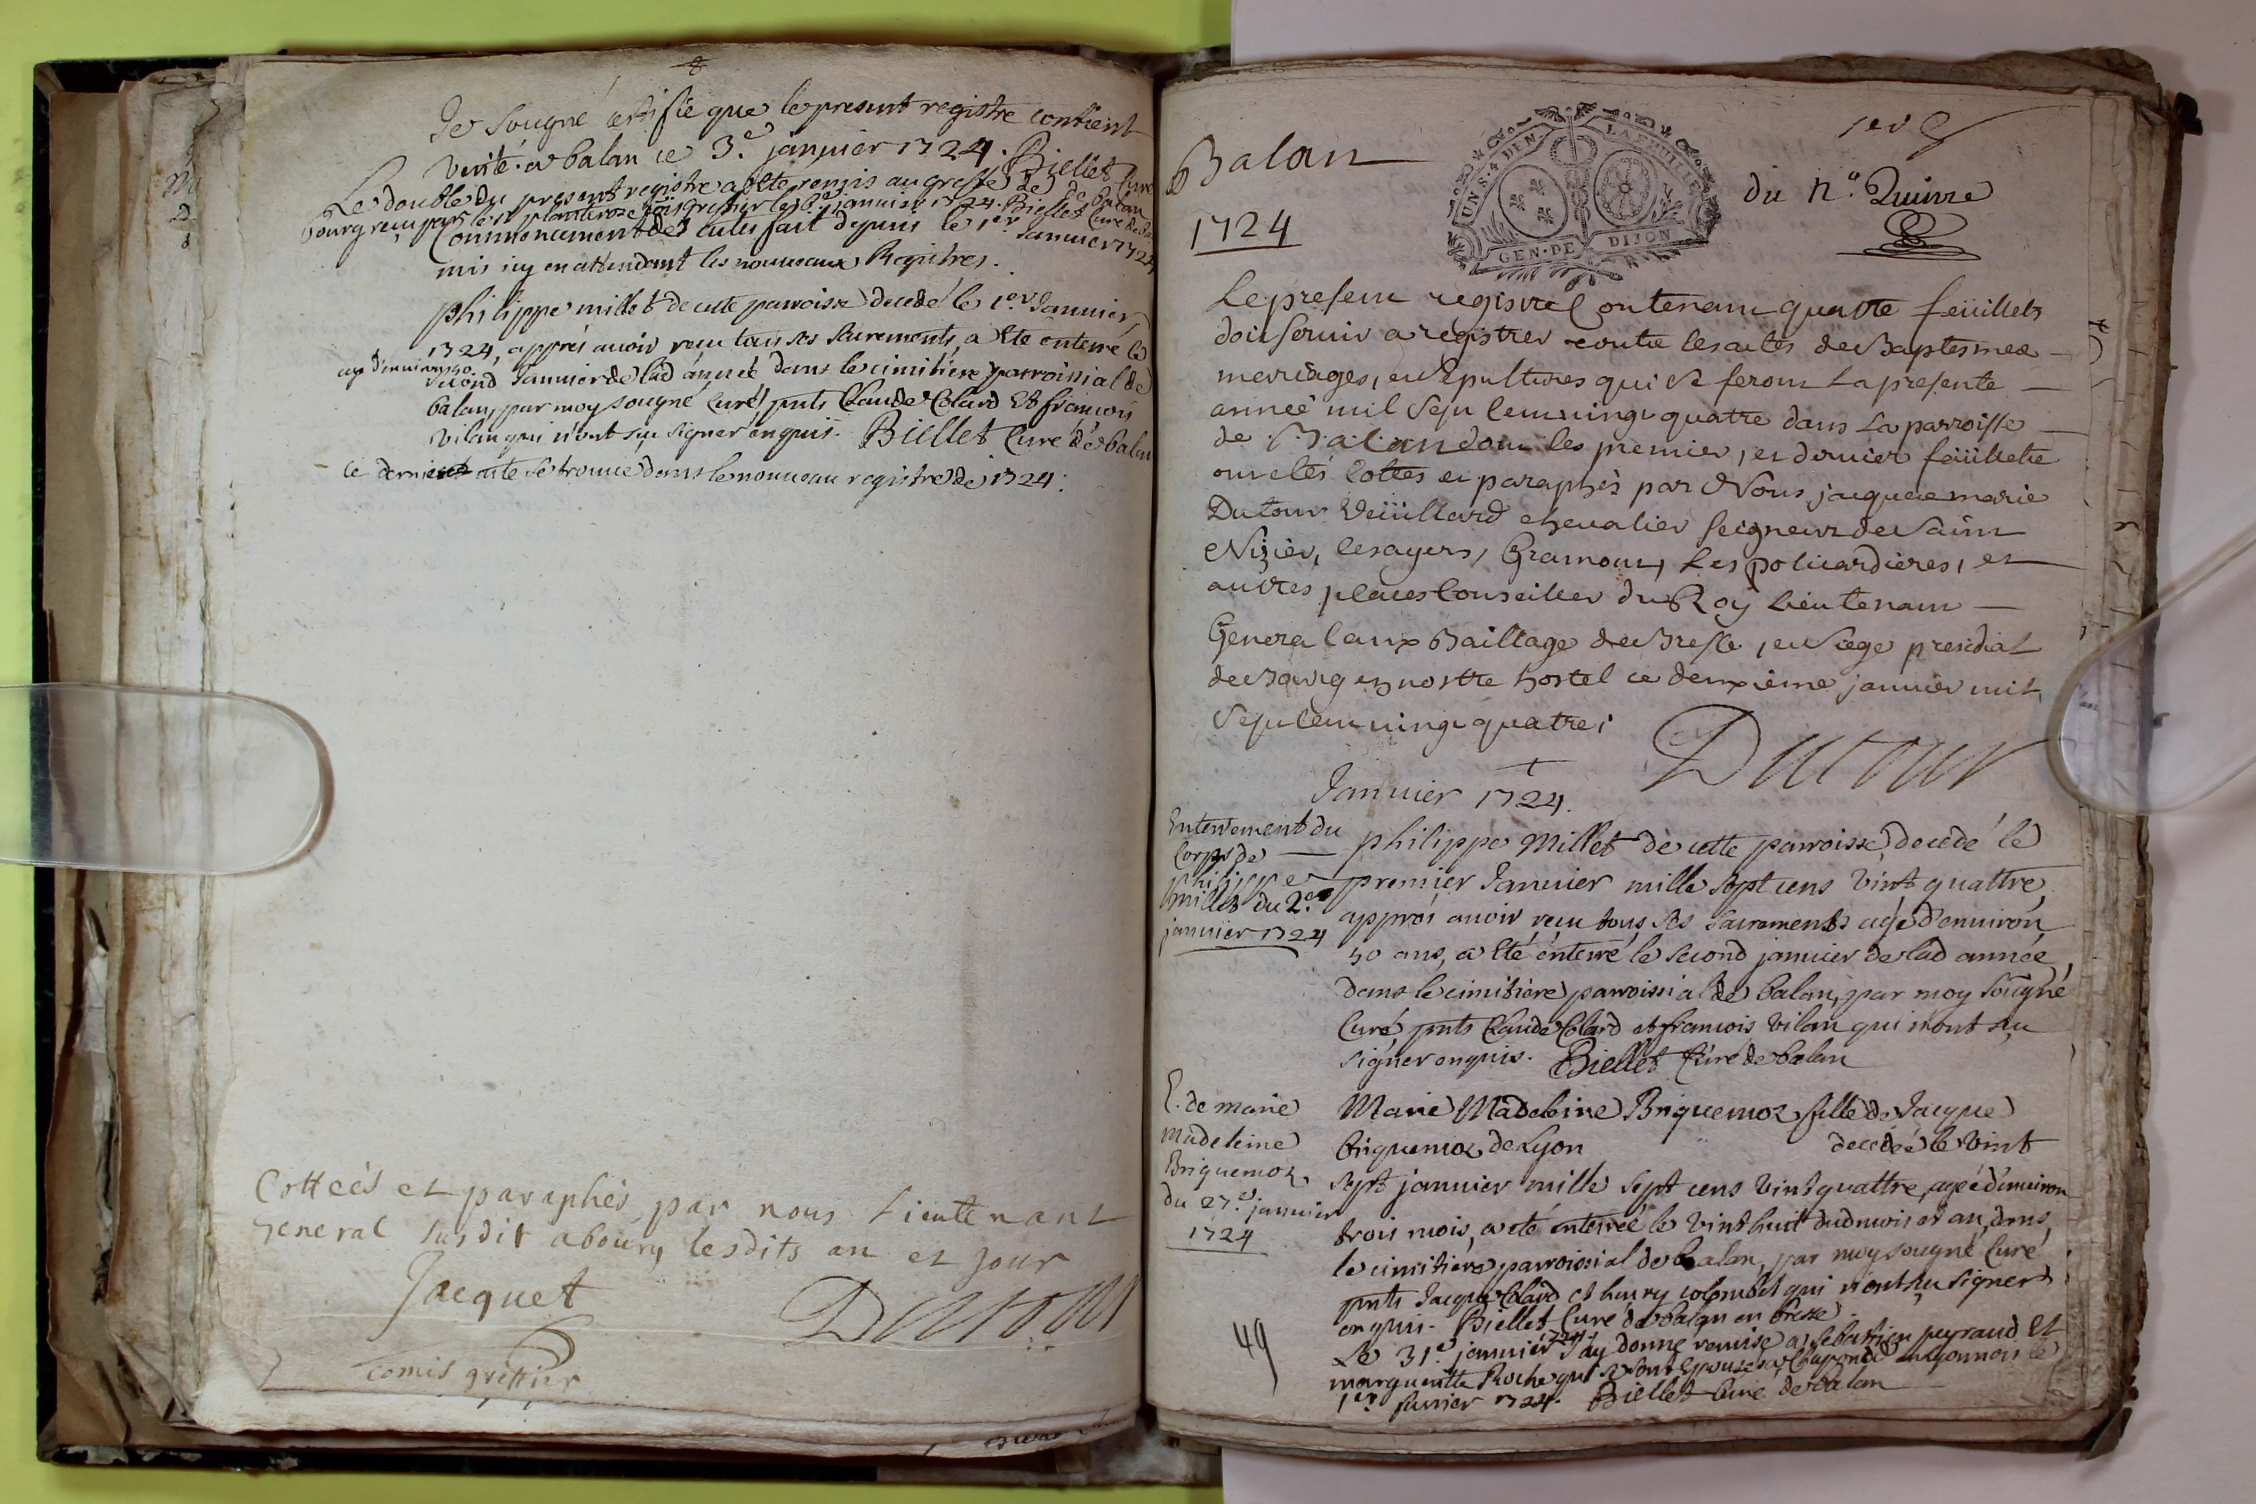 Je sougné certifie que le present registre contient
verité. a balan ce 3.e janvier 1724. Biellet Curé
de balan
Le double du present registre a ete remis au greffe de
bourg reçu par le sr greffier le 6e janvier 1724. Biellet Curé de
Commencement des actes fait depuis le 1er Janvier 1724
mis icy en attendant les nouveaux Registres.
philippe millet de cette parroisse decedé le 1er Janvier
1724, apprés avoir receu tous ses sacrements, a Eté enterré le
agé d'environ 50.
second Janvier de lad année dans le cimitiere parroissial de
balan, par moy sougné Curé, pnts Claude Colard Et francois
vilan qui n'ont sçu signer enquis. Biellet Curé de balan
ce dernier acte se trouve dans le nouveau registre de 1724.
Cottees et paraphés par nous Lieutenant
General susdit a bourg lesdits an et jour
Jacquet
Dutour
comis greffier
Balan
1724
UN.S.4 DEN. LA FEUILLE
GEN. DE DIJON
du n.o Quinze
Le present registre Contenant quatre feüillets
doit servir a registrer toutte les actes de Baptesmes
mariages, et sepultures qui se feront La presente
année mil sept cent vingt quatre dans La parroisse
de Balan dont les premier, et dernier feüillets
ont etés Cottes et paraphés par Nous jacques marie
Dutour Veüillard chevalier seigneur de saint
Nizier, Lesayers, Gramont, Les policardieres, et
autres places Conseiller du Roy Lieutenant
General aux Baillage de Bresse, et siege presidial
de Bourg en nostre hostel ce deuxieme janvier mil
sept cent vingt quatre;
Dutour
Janvier 1724.
Enterrement du
Corps de
philippe
millet du 2e
janvier 1724
philippe Millet de cette parroisse, decedé le
premier Janvier mille sept cens vint quattre,
apprés avoir receu tous ses sacrements agé d'environ
50 ans, a eté enterré le second janvier de lad année,
dans le cimitiere parroissial de balan, par moy sougné
Curé, pnts Claude Colard et francois vilan qui n'ont sçu
signer enquis. Biellet Curé de balan
E. de marie
Madeleine
Briquemoz
du 27.e janvier
1724
Marie Madeleine Briquemoz fille de Jacque
briquemoz de Lyon decedée le vint
sept janvier mille sept cens vint quattre, agée d'environ
trois mois, a eté enterrée le vint huit dud mois et an, dans
le cimitiere parroissial de balan, par moy sougné Curé,
pnts Jacque Colard et henry colombet qui n'ont sçu signer
enquis. Biellet Curé de balan en bresse
Le 31e janvier 1724. J'ay donné remise a sebastien peyraud Et
marguerite Roche qui se sont Epousés a en Lyonnois le
1er fevrier 1724. Biellet Curé de balan
49